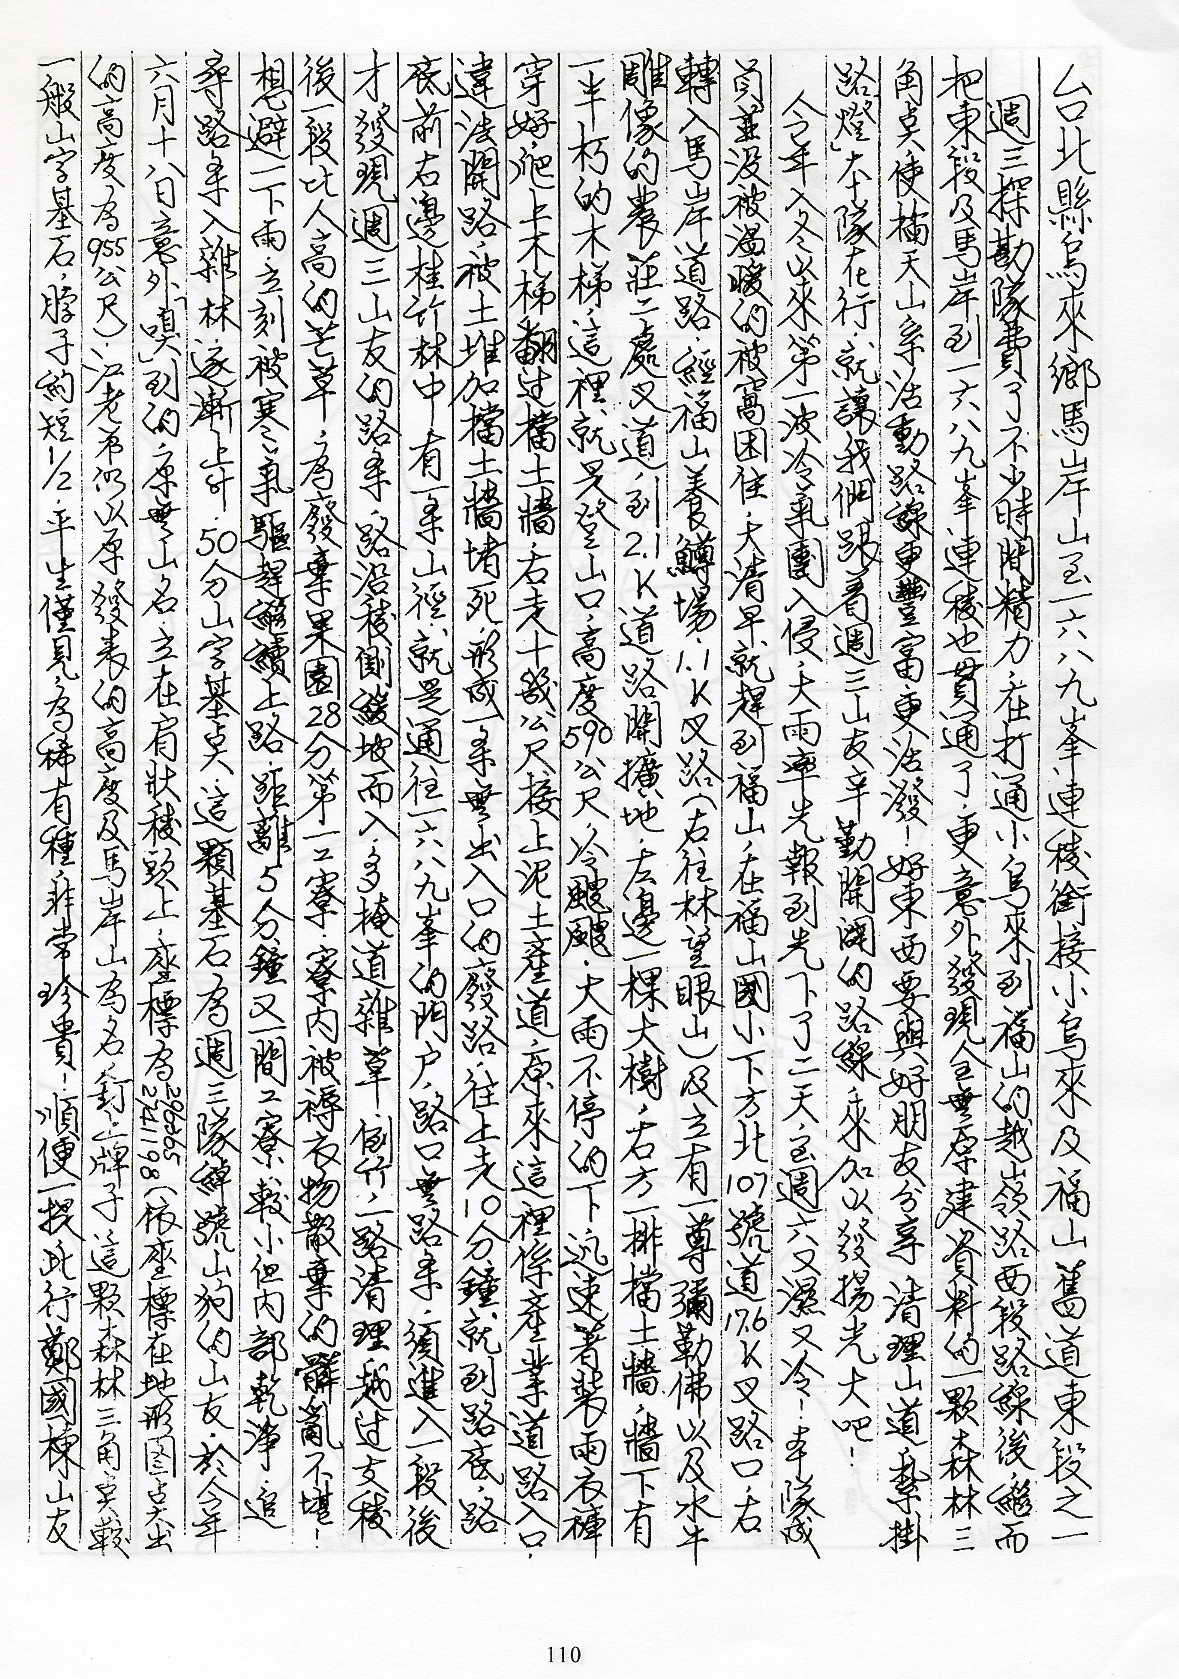 台北縣烏來鄉馬岸山至一六八九峯連稜銜接小烏來及福山舊道東段之一
週三探勘隊費了不少時間精力，在打通小烏來到福山的越嶺路西段路線後，繼而
把東段及馬岸到一六八九峯連稜也貫通了，更意外發現全無原建資料的一顆森林三
角點，使楠天山系活動路線更豐富更活潑！好東西要與好朋友分享，清理山道，紮掛
路燈，大隊在行，就讓我們跟着週三山友辛勤開闢的路線，來加以發揚光大吧！
今年入冬以來第一波冷氣團入侵，大雨率先報到，先下了二天，至週六又濕又冷！本隊成
員並沒被溫暖的被窩困住，大清早就趕到福山，在福山國小下方北107號道17.6K叉路口，右
轉入馬岸道路，經福山養鱒場，1.1K叉路(右往林望眼山)及立有一尊彌勒佛以及水牛
雕像的農莊二處叉道，到2.1K道路開擴地，左邊一棵大樹，右方一排擋土牆，牆下有
一半朽的木梯，這裡就是登山口，高度590公尺，冷颼颼，大雨不停的下，迅速著裝雨衣褲
穿好，爬上木梯，翻过擋土牆，右走十幾公尺接上泥土產道，原來這裡係產業道路入口，
違法開路，被土堆加擋土牆堵死，形成一条無出入口的廢路，往上走10分鐘，就到路底，路
底前右邊桂竹林中，有一条山徑，就是通往一六八九峯的門户，路口無路条，須進入一段後
才發現週三山友的路条，路沿稜側緩坡而入，多掩道雜草、倒竹，一路清理，越过支稜
後一段比人高的芒草，為廢棄果園，28分第一工寮，寮内被褥衣物散棄的髒亂不堪！
想避一下雨，立刻被寒氣驅趕，繼續上路，距離5分鐘又一間工寮，較小但内部乾淨，追
尋路条入雜林，逐漸上升，50分山字基点，這顆基石為週三隊綽號山狗的山友，於今年
六月十八日意外「嗅」到的，原無山名，立在肩狀稜頭上，座標為296265 2741198(依座標在地形图点出
的高度為955公尺)，江老弟仍以原發表的高度及馬岸山為名，釘上牌子，這顆森林三角点較
一般山字基石，脖子約短1/2，平生僅見，為稀有種，非常珍貴！順便一提，此行鄭國棟山友
110